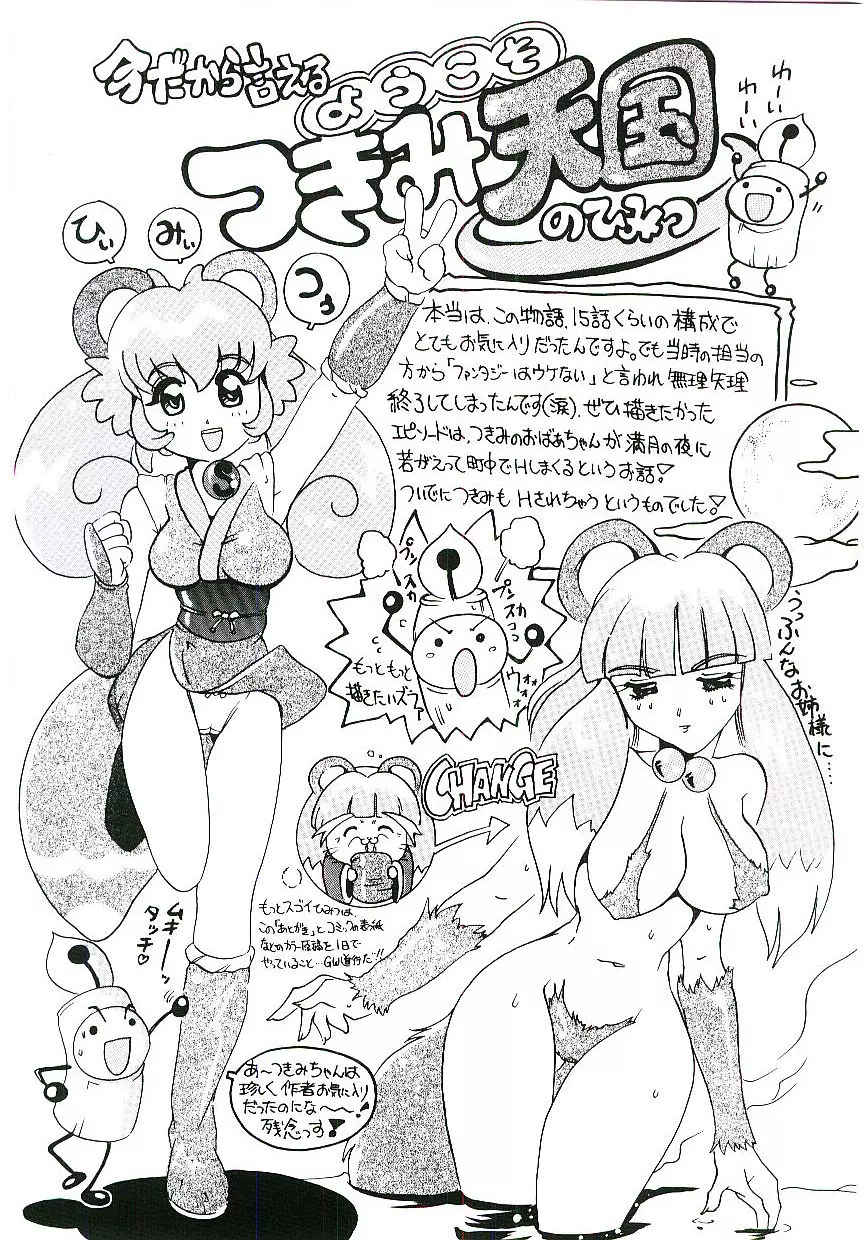 今だから言える
ようこそ
つきみ天国
のひみつ
わーい
わーい
ひぃ
みぃ
つぅ
本当は、この物語、15話くらいの構成で
とてもお気に入りだったんですよ。でも当時の担当の
方から「ファンタジーはウケない」と言われ無理矢理
終了してしまったんです(涙)、ぜひ描きたかった
エピソードは、つきみのおばあちゃんが満月の夜に
若がえって町中でHしまくるというお話!
ついでにつきみもHされちゃうというものでした!
プンスカ
プンスカ
コラ
もっともっと
描きたいズラ
ウォォォ
うっふんなお姉様に……
CHANGE
もっとスゴイひみつは、
この「あとがき」とコミックの表紙
などのカラー原稿を1日で
やっていること…GW進行だ!!
ムキーッ
タッチ♡
あ〜つきみちゃんは
珍しく作者お気に入り
だったのにな〜〜!
残念っす!